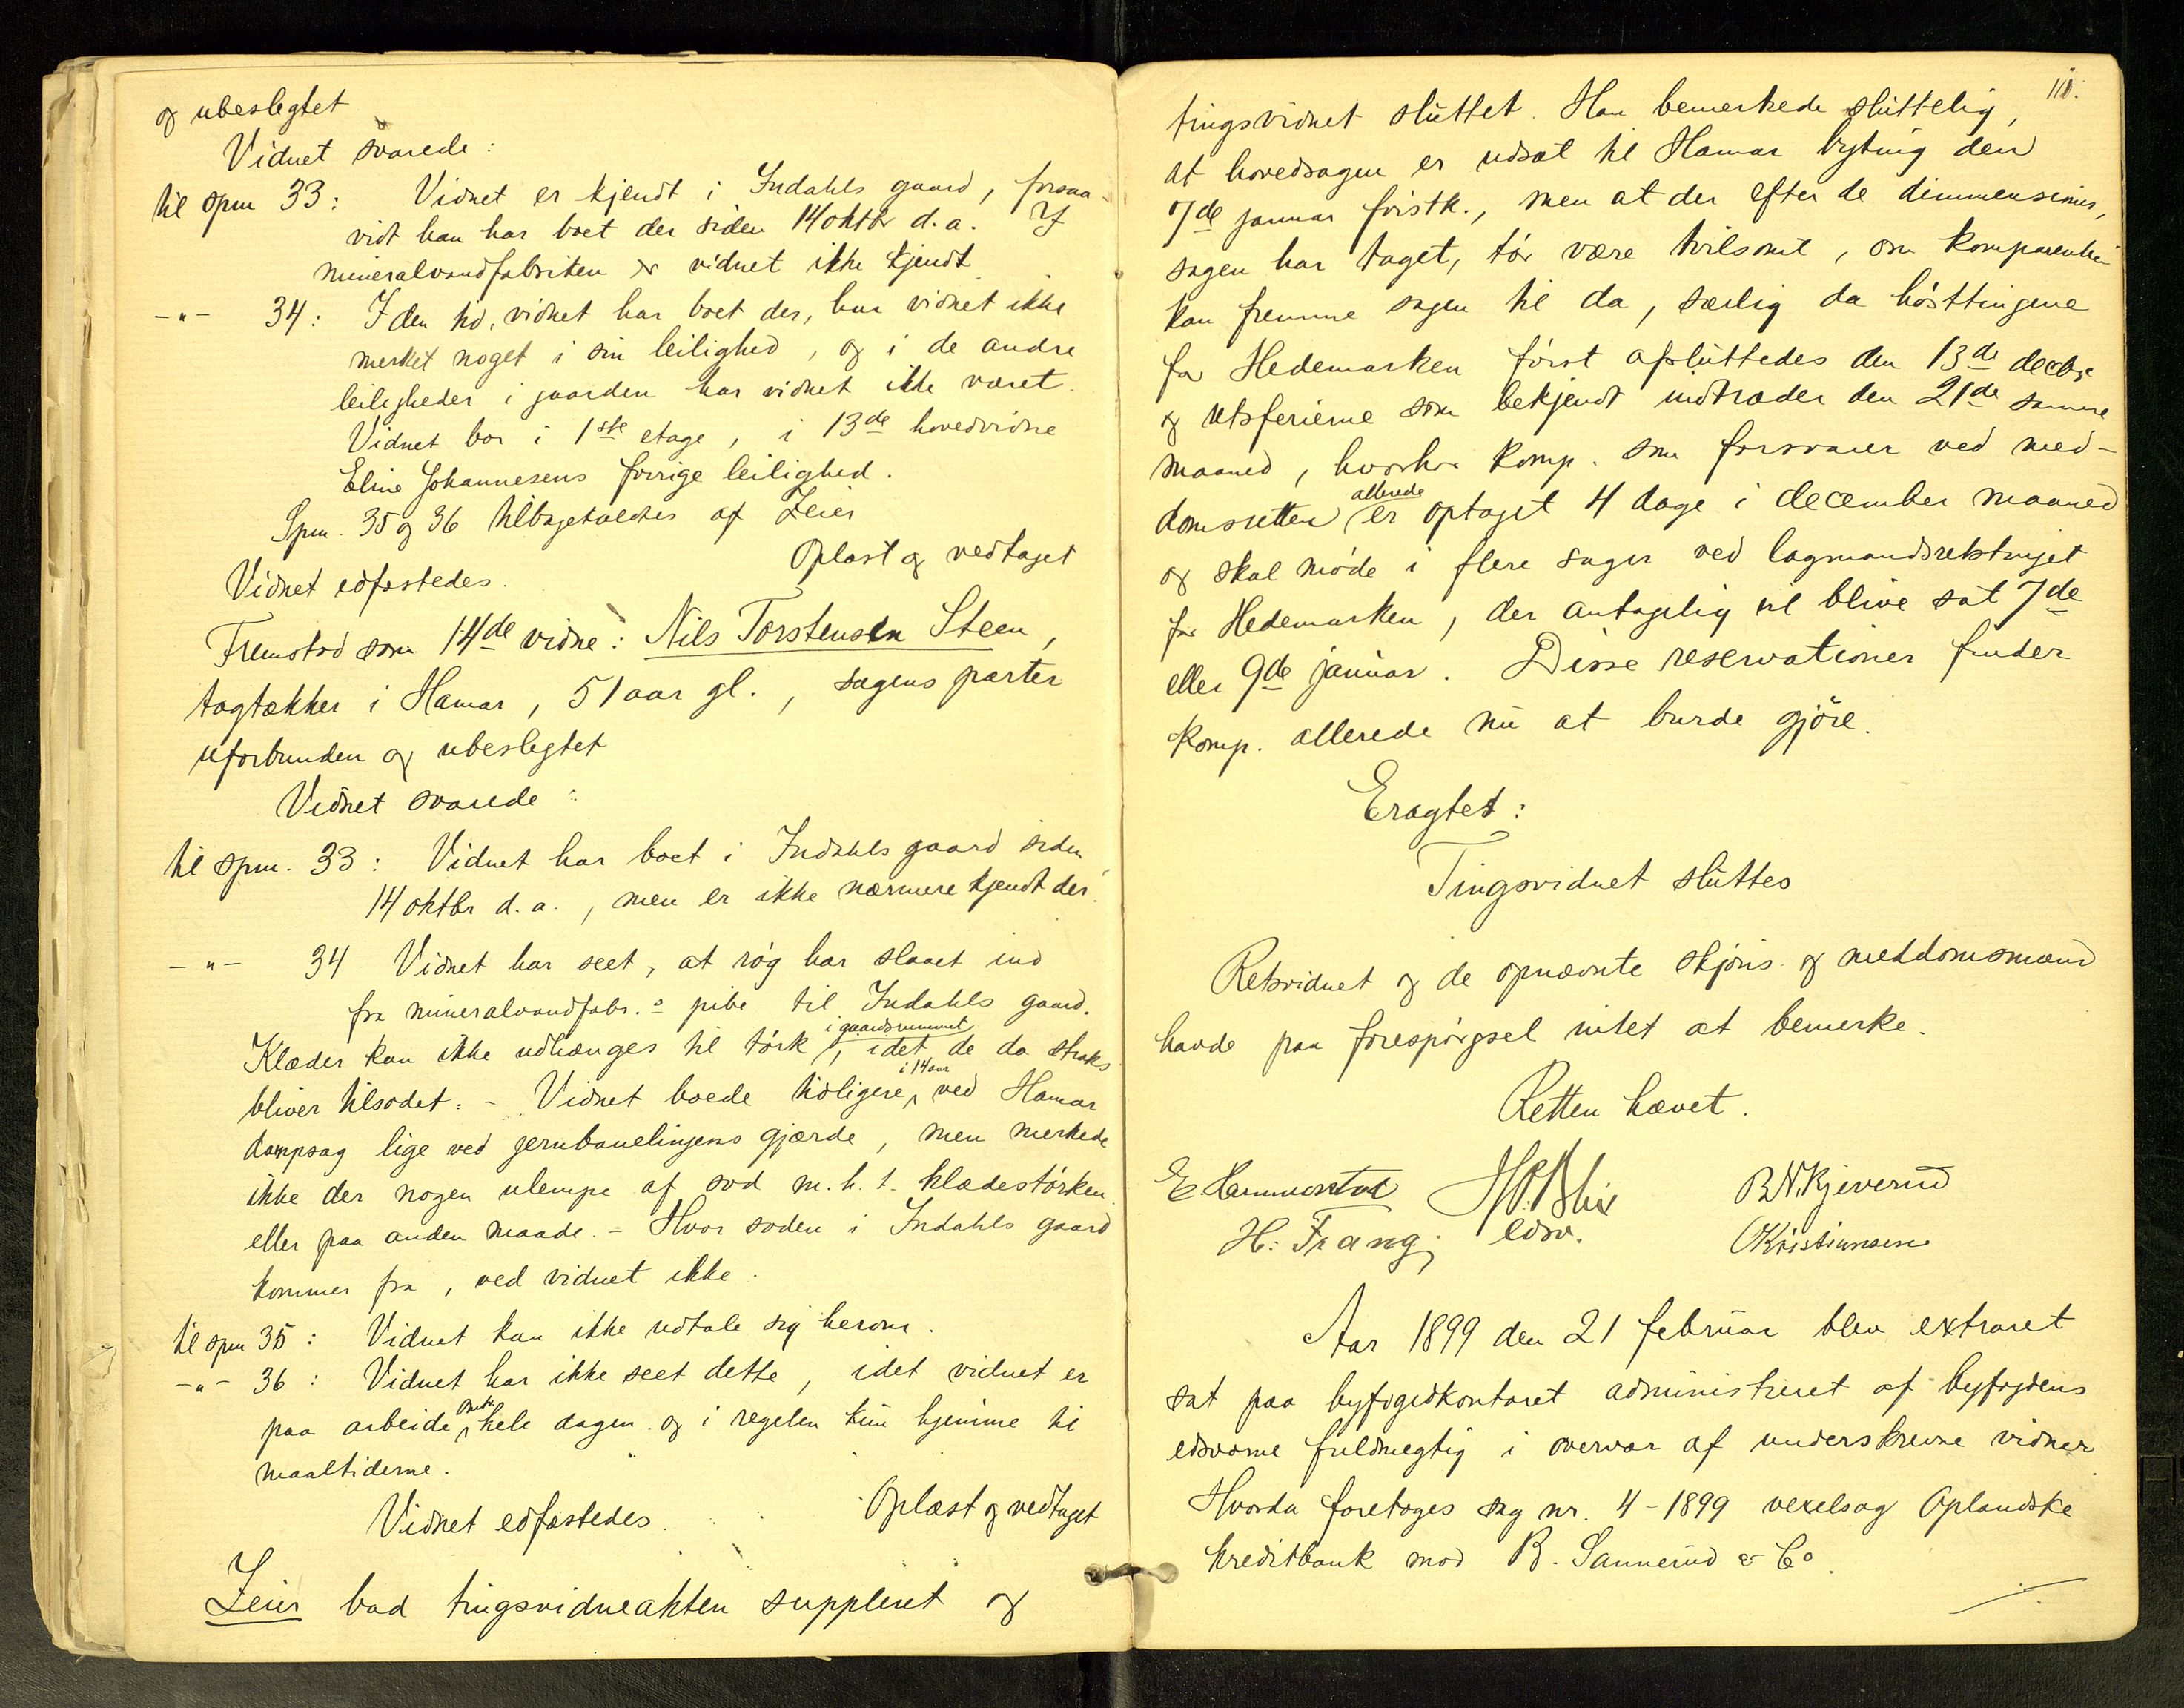 og ubeslegtet
Vidnet svarede:
til spm 33: Vidnet er kjendt i Indahls gaard, forsaa-
vidt han har boet der siden 14 oktbr d. a. I
mineralvandfabriken er vidnet ikke kjendt
-"- 34: I den tid, vidnet har boet der, har vidnet ikke
merket noget i sin leilighed, og i de andre
leiligheder i gaarden har vidnet ikke været.
Vidnet bor i 1ste etage, i 13de hovedvidne
Eline Johannesens forrige leilighed.
Spm. 35 og 36 tilbagekaldtes af Zeier
Oplæst og vedtaget
Vidnet edfæstedes.
Fremstod som 14de vidne: Nils Torstensen Steen,
tagtækker i Hamar, 51 aar gl., sagens parter
uforbunden og ubeslegtet
Vidnet svarede:
til spm. 33: Vidnet har boet i Indahls gaard siden
14 oktbr d. a., men er ikke nærmere kjendt der.
-"- 34 Vidnet har seet, at røg har slaaet ind
fra mineralvandfabr.s pibe til Indahls gaard.
Klæder kan ikke udhænges til tørk i gaardsrummet, idet de da straks
bliver tilsodet. - Vidnet boede tidligere i 14 aar ved Hamar
dampsag lige ved jernbanelinjens gjærde, men merkede
ikke der nogen ulempe af sod m. h. t. klædestørken
eller paa anden maade. - Hvor soden i Indahls gaard
kommer fra, ved vidnet ikke.
til spm 35: Vidnet kan ikke udtale sig herom.
-"- 36: Vidnet har ikke seet dette, idet vidnet er
paa arbeide hele dagen og i regelen kun hjemme til
maaltiderne.
Vidnet edfæstedes. Oplæst og vedtaget
Zeier bad tingsvidneakten suppleret og
110.
tingsvidnet sluttet. Han bemerkede sluttelig,
at hovedsagen er udsat til Hamar byting den
7de januar førstk., men at der efter de dimmensioner,
sagen har taget, tør være tvilsomt, om komparenten
kan fremme sagen til da, særlig da høsttingene
for Hedemarken først afsluttedes den 13de decbr.
og retsferierne som bekjendt indtræder den 21de samme
maaned, hvorhos komp. som forsvarer ved med-
domsretten allerede er optaget 4 dage i december maaned
og skal møde i flere sager ved lagmandsretstinget
for Hedemarken, der antagelig vil blive sat 7de
eller 9de januar. Disse reservationer finder
komp. allerede nu at burde gjøre.
Eragtet:
Tingsvidnet sluttes
Retsvidnet og de opnævnte skjøns- og meddomsmænd
havde paa forespørgsel intet at bemerke.
Retten hævet.
E. Hammerstad H. P. Blix B. N. Kjeverud
H. Frang. edsv. O Kristiansen
Aar 1899 den 21 februar blev extraret
sat paa byfogedkontoret administreret af byfogdens
edsvorne fuldmegtig i overvær af underskrevne vidner
Hvorda foretoges sag nr. 4-1899 vexelsag Oplandske
kreditbank mod B. Sannerud & Co.